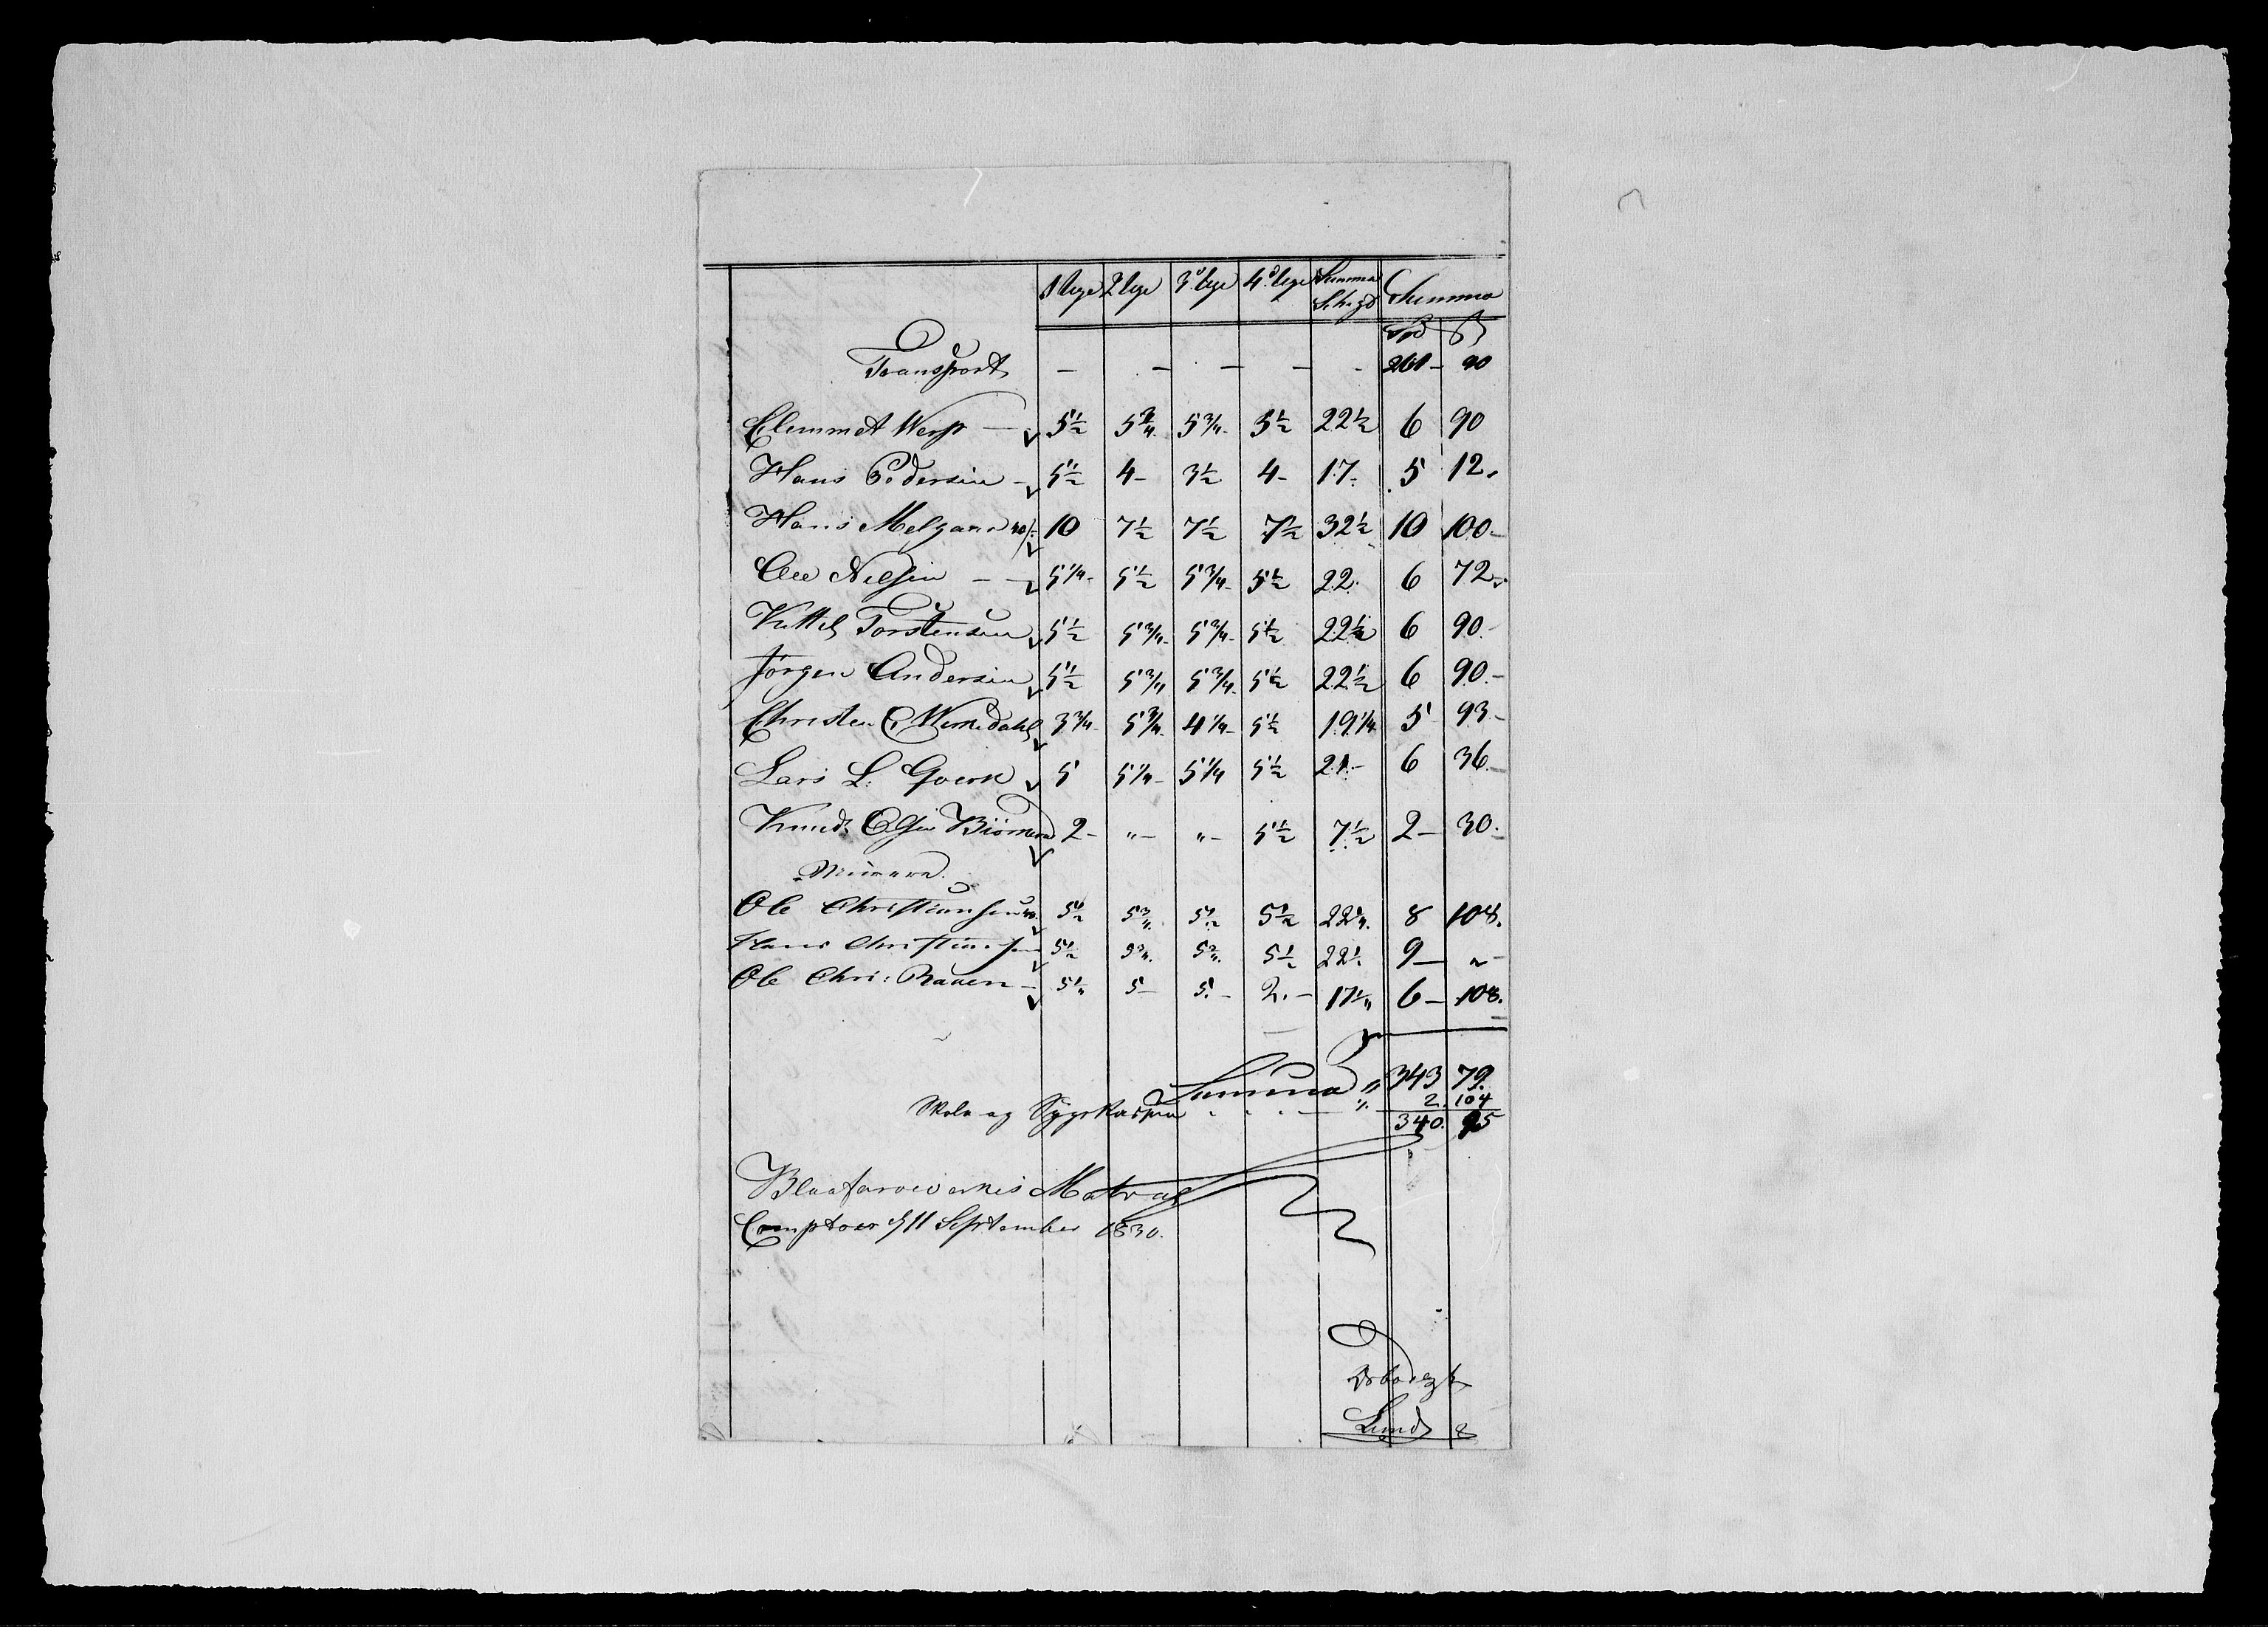 1 Uge 2 Uge 3. Uge 4. Uge Summa Summa
Spd ß
Transport — — — — - 261 - 90
Clemmet Werp — 5½ 5¾ 5¾ 5½ 22½ 6 90
Hans Pedersen - 5½ 4- 3½ 4- 17- 5 12.
Hans Melzar 10 7½ 7½ 7½ 32½ 10 100-
Ole Nielsen - - 5¼- 5½ 5¾- 5½ 22. 6 72-
Kittil Torstensen 5½ 5¾- 5¾- 5½ 22½ 6 90.-
Jörgen Andersen 5½ 5¾ 5¾- 5½ 22½ 6 90.-
Christen 3¾- 5¾- 4¼- 5½ 19¼ 5 93-
Lars L. 5 5¼- 5¼ 5½ 21- 6 36.-
Knud Olsen 2- "- "- 5½ 7½ 2- 30.-
Ole Christiansen 5½ 5¾ 5½ 5½ 22¼ 8 108.
Hans Christiansen 5½ 5¾ 5¾ 5½ 22½ 9- "-
Ole Chri: Raaen - 5¼ 5- 5.- 2.- 17¼ 6- 108.
Summa " 343 79.
Skole og Sygekassen " 2. 104
340. 95
Blaafarveværkets
Comptoir d 11 September 1830.
Lund